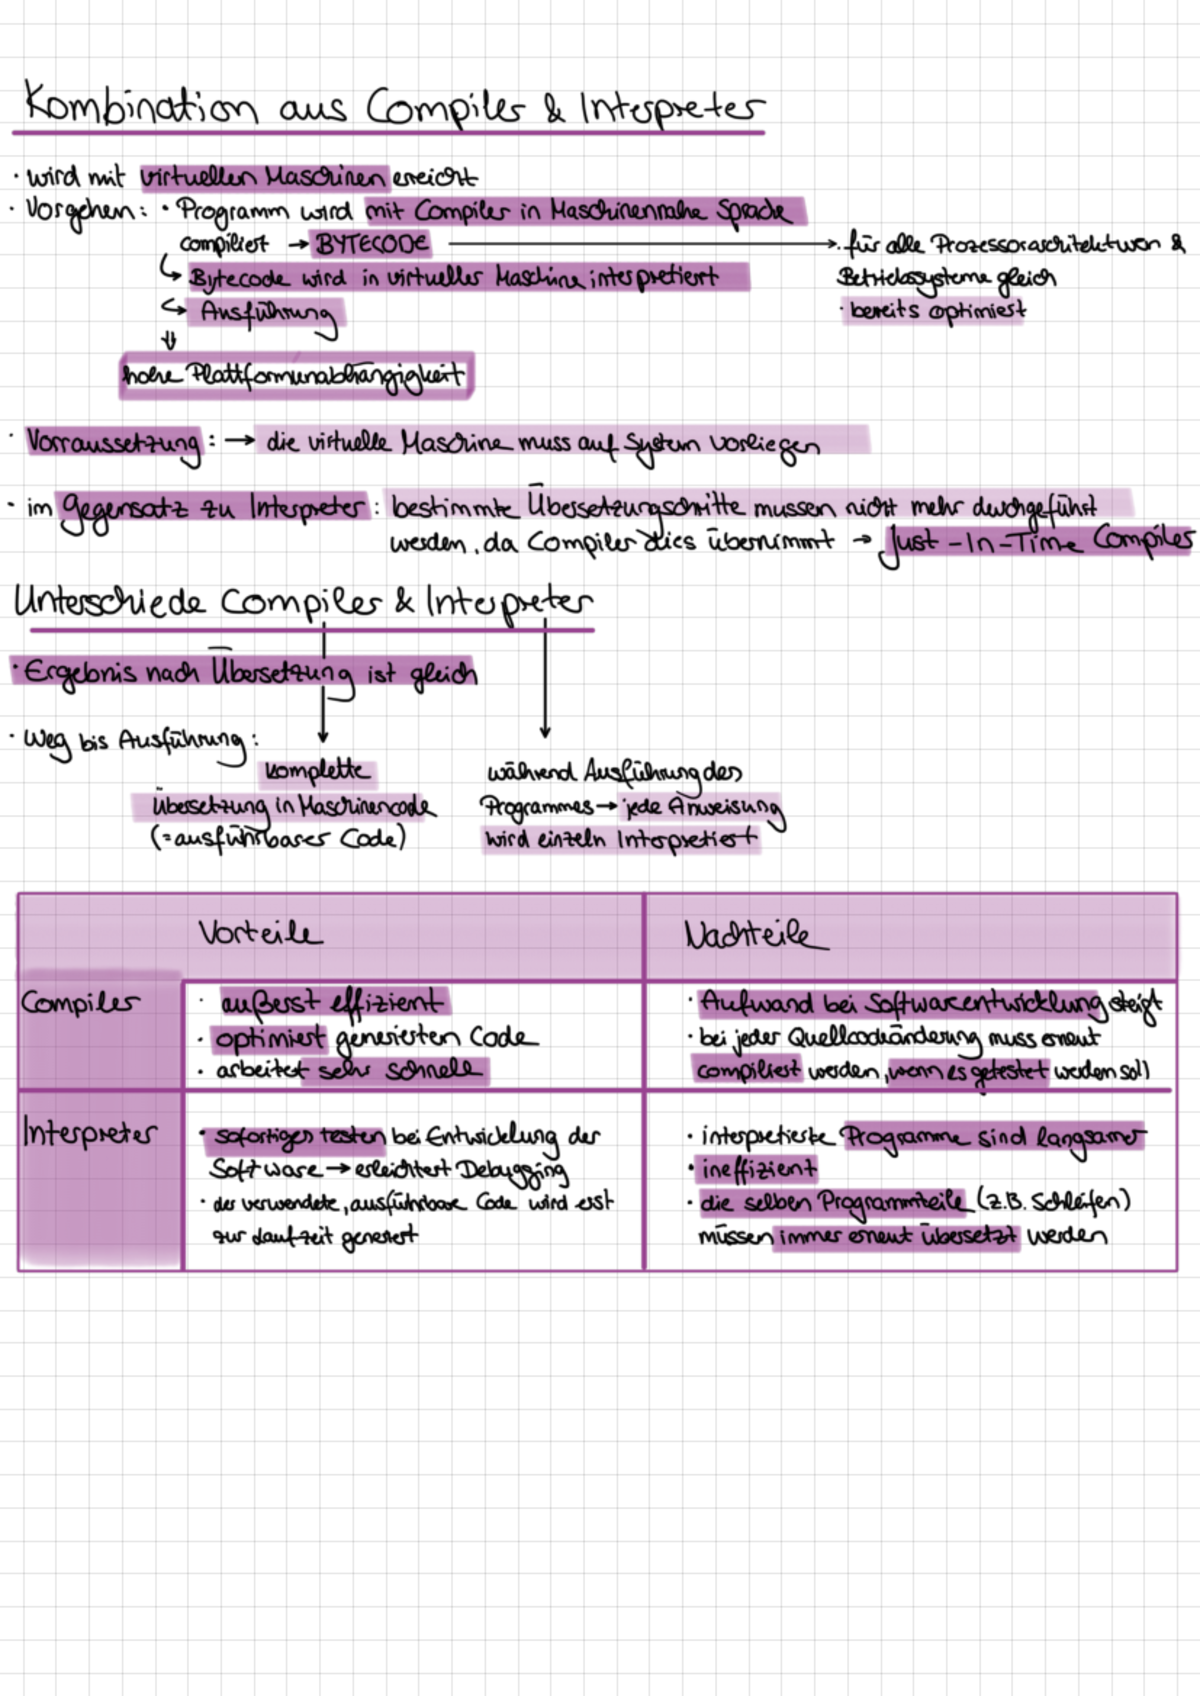 Kombination aus Compiler & Interpreter
· wird mit virtuellen Maschinen erreicht
· Vorgehen: · Programm wird mit Compiler in Maschinennahe Sprache
compiliert → BYTECODE → · für alle Prozessorarchitekturen &
↳ Bytecode wird in virtueller Maschine interpretiert Betriebssysteme gleich
↳ Ausführung · bereits optimiert
⇓
hohe Plattformunabhängigkeit
· Vorraussetzung: → die virtuelle Maschine muss auf System vorliegen
· im Gegensatz zu Interpreter: bestimmte Übersetzungschritte mussen nicht mehr durchgeführt
werden, da Compiler dies übernimmt → Just-In-Time Compiler
Unterschiede Compiler & Interpreter
· Ergebnis nach Übersetzung ist gleich
· Weg bis Ausführung:
komplette während Ausführung des
Übersetzung in Maschinencode Programmes → jede Anweisung
(=ausführbarer Code) wird einzeln Interpretiert
Vorteile Nachteile
Compiler · außerst effizient · Aufwand bei Softwareentwicklung steigt
· optimiert generierten Code · bei jeder Quellcodeänderung muss erneut
· arbeitet sehr schnell compiliert werden, wenn es getestet werden soll
Interpreter · sofortiges testen bei Entwicklung der · interpretierte Programme sind langsamer
Software → erleichtert Debugging · ineffizient
· der verwendete, ausführbare Code wird erst · die selben Programmteile (z.B. Schleifen)
zur Laufzeit generiert müssen immer erneut übersetzt werden